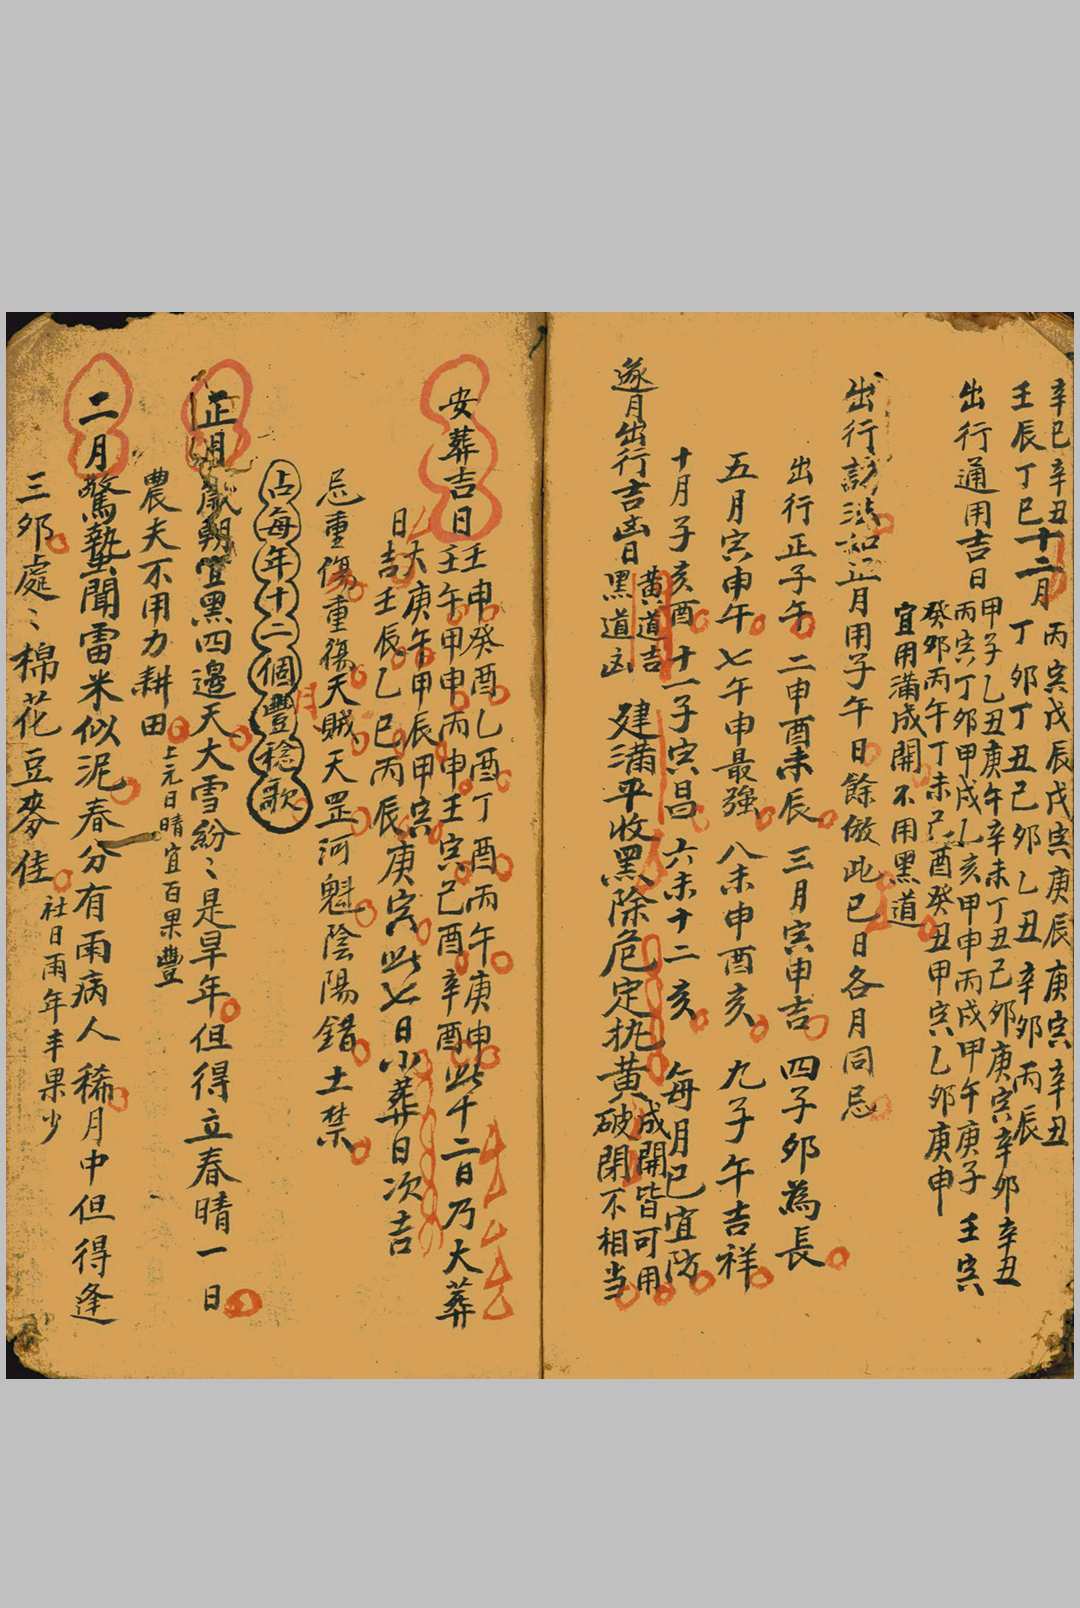 辛巳辛丑十二月丙寅戊辰戊寅庚辰庚寅辛丑
壬辰丁巳丁卯丁丑己卯乙丑辛卯丙辰
出行通用吉日
甲子乙丑庚午辛未丁丑己卯庚寅辛卯辛丑
丙寅丁卯甲戌乙亥甲申丙戌甲午庚子壬寅
癸卯丙午丁未己酉癸丑甲寅乙卯庚申
宜用滿成開不用黑道
出行訣法和正月用子午日餘倣此巳日各月同忌
出行正子午二申酉未辰三月寅申吉四子卯為長
五月寅申午七午申最強八未申酉亥九子午吉祥
十月子亥酉十一子寅昌六未十二亥每月巳宜防
逐月出行吉凶日
黃道吉
黑道凶
建滿平收黑除危定执黃
成開皆可用
破閉不相当
安葬吉日
壬申癸酉乙酉丁酉丙午庚申
壬午甲申丙申壬寅己酉辛酉此十二日乃大葬
日大庚午甲辰甲寅
吉壬辰乙巳丙辰庚寅此七日小葬日次吉
忌重傷重復天賊月天罡河魁陰陽錯土禁
占每年十二個豐稔歌
正月歲朝宜黑四邊天大雪紛〻是旱年但得立春晴一日
農夫不用力耕田
上元日晴宜百果豐
二月驚蟄聞雷米似泥春分有雨病人稀月中但得逢
三卯處〻棉花豆麥佳
社日雨年丰果少